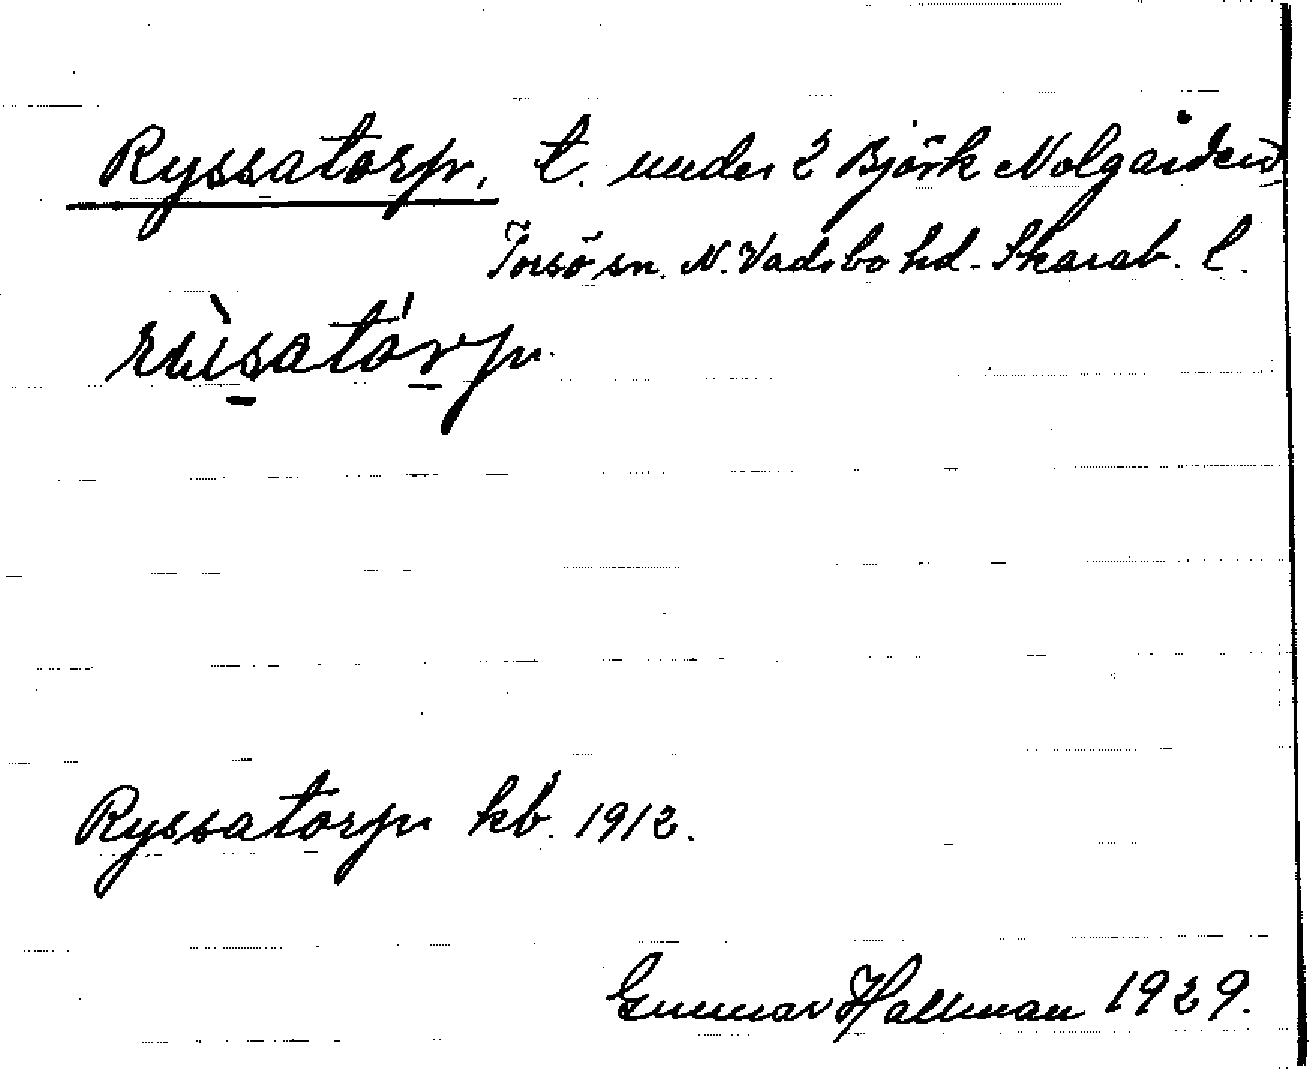 Ryssatorp. t. under 2 Björk Nolgården
Torsö sn. N. Vadsbo hd. Skarab. l.
Ryssatorp kb. 1912.
Gunnar Hallman 1929.